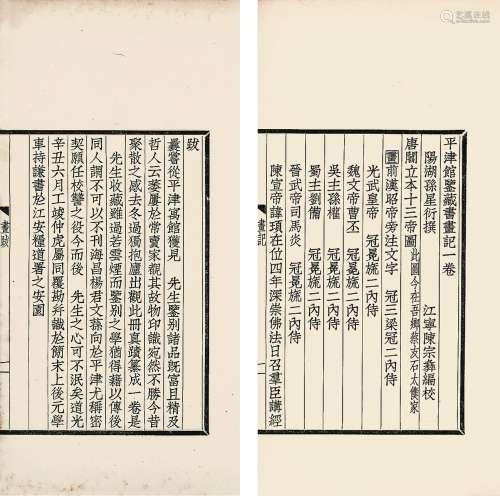 平津館鑒藏書畫記一卷
陽湖孫星衍撰
江寧陳宗彝編校
唐閻立本十三帝圖此圖今在吾鄉蔡友石太僕家
畫前漢昭帝旁注文字　冠三梁冠二內侍
光武皇帝　冠冕旒二內侍
魏文帝曹丕　冠冕旒二內侍
吳主孫權　冠冕旒二內侍
蜀主劉備　冠冕旒二內侍
晉武帝司馬炎　冠冕旒二內侍
陳宣帝諱頊在位四年深崇佛法日召羣臣講經
畫記
一
跋
曩嘗從平津寓館獲見　先生鑒別諸品既富且精及
哲人云萎屢於常賣家覩其故物印識宛然不勝今昔
聚散之感去冬過獨抱廬出觀此冊真蹟纂成一卷是
先生收藏雖過若雲煙而鑒別之學猶得藉以傳後
同人謂不可以不刊海昌楊君文蓀向於平津尤稱密
契願任校讐之役今而後　先生之心可不泯矣道光
辛丑六月工竣仲虎屬同覆勘幷識於簡末上後元學
車持謙書於江安糧道署之安園
畫跋
一